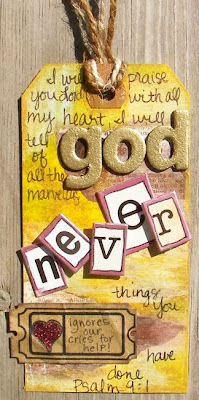 I will praise
you Lord with all
my heart, I will
tell
of
all the
marvelous
god
never
ignores
our
cries for
help!
things
you
have
done
Psalm 9:1